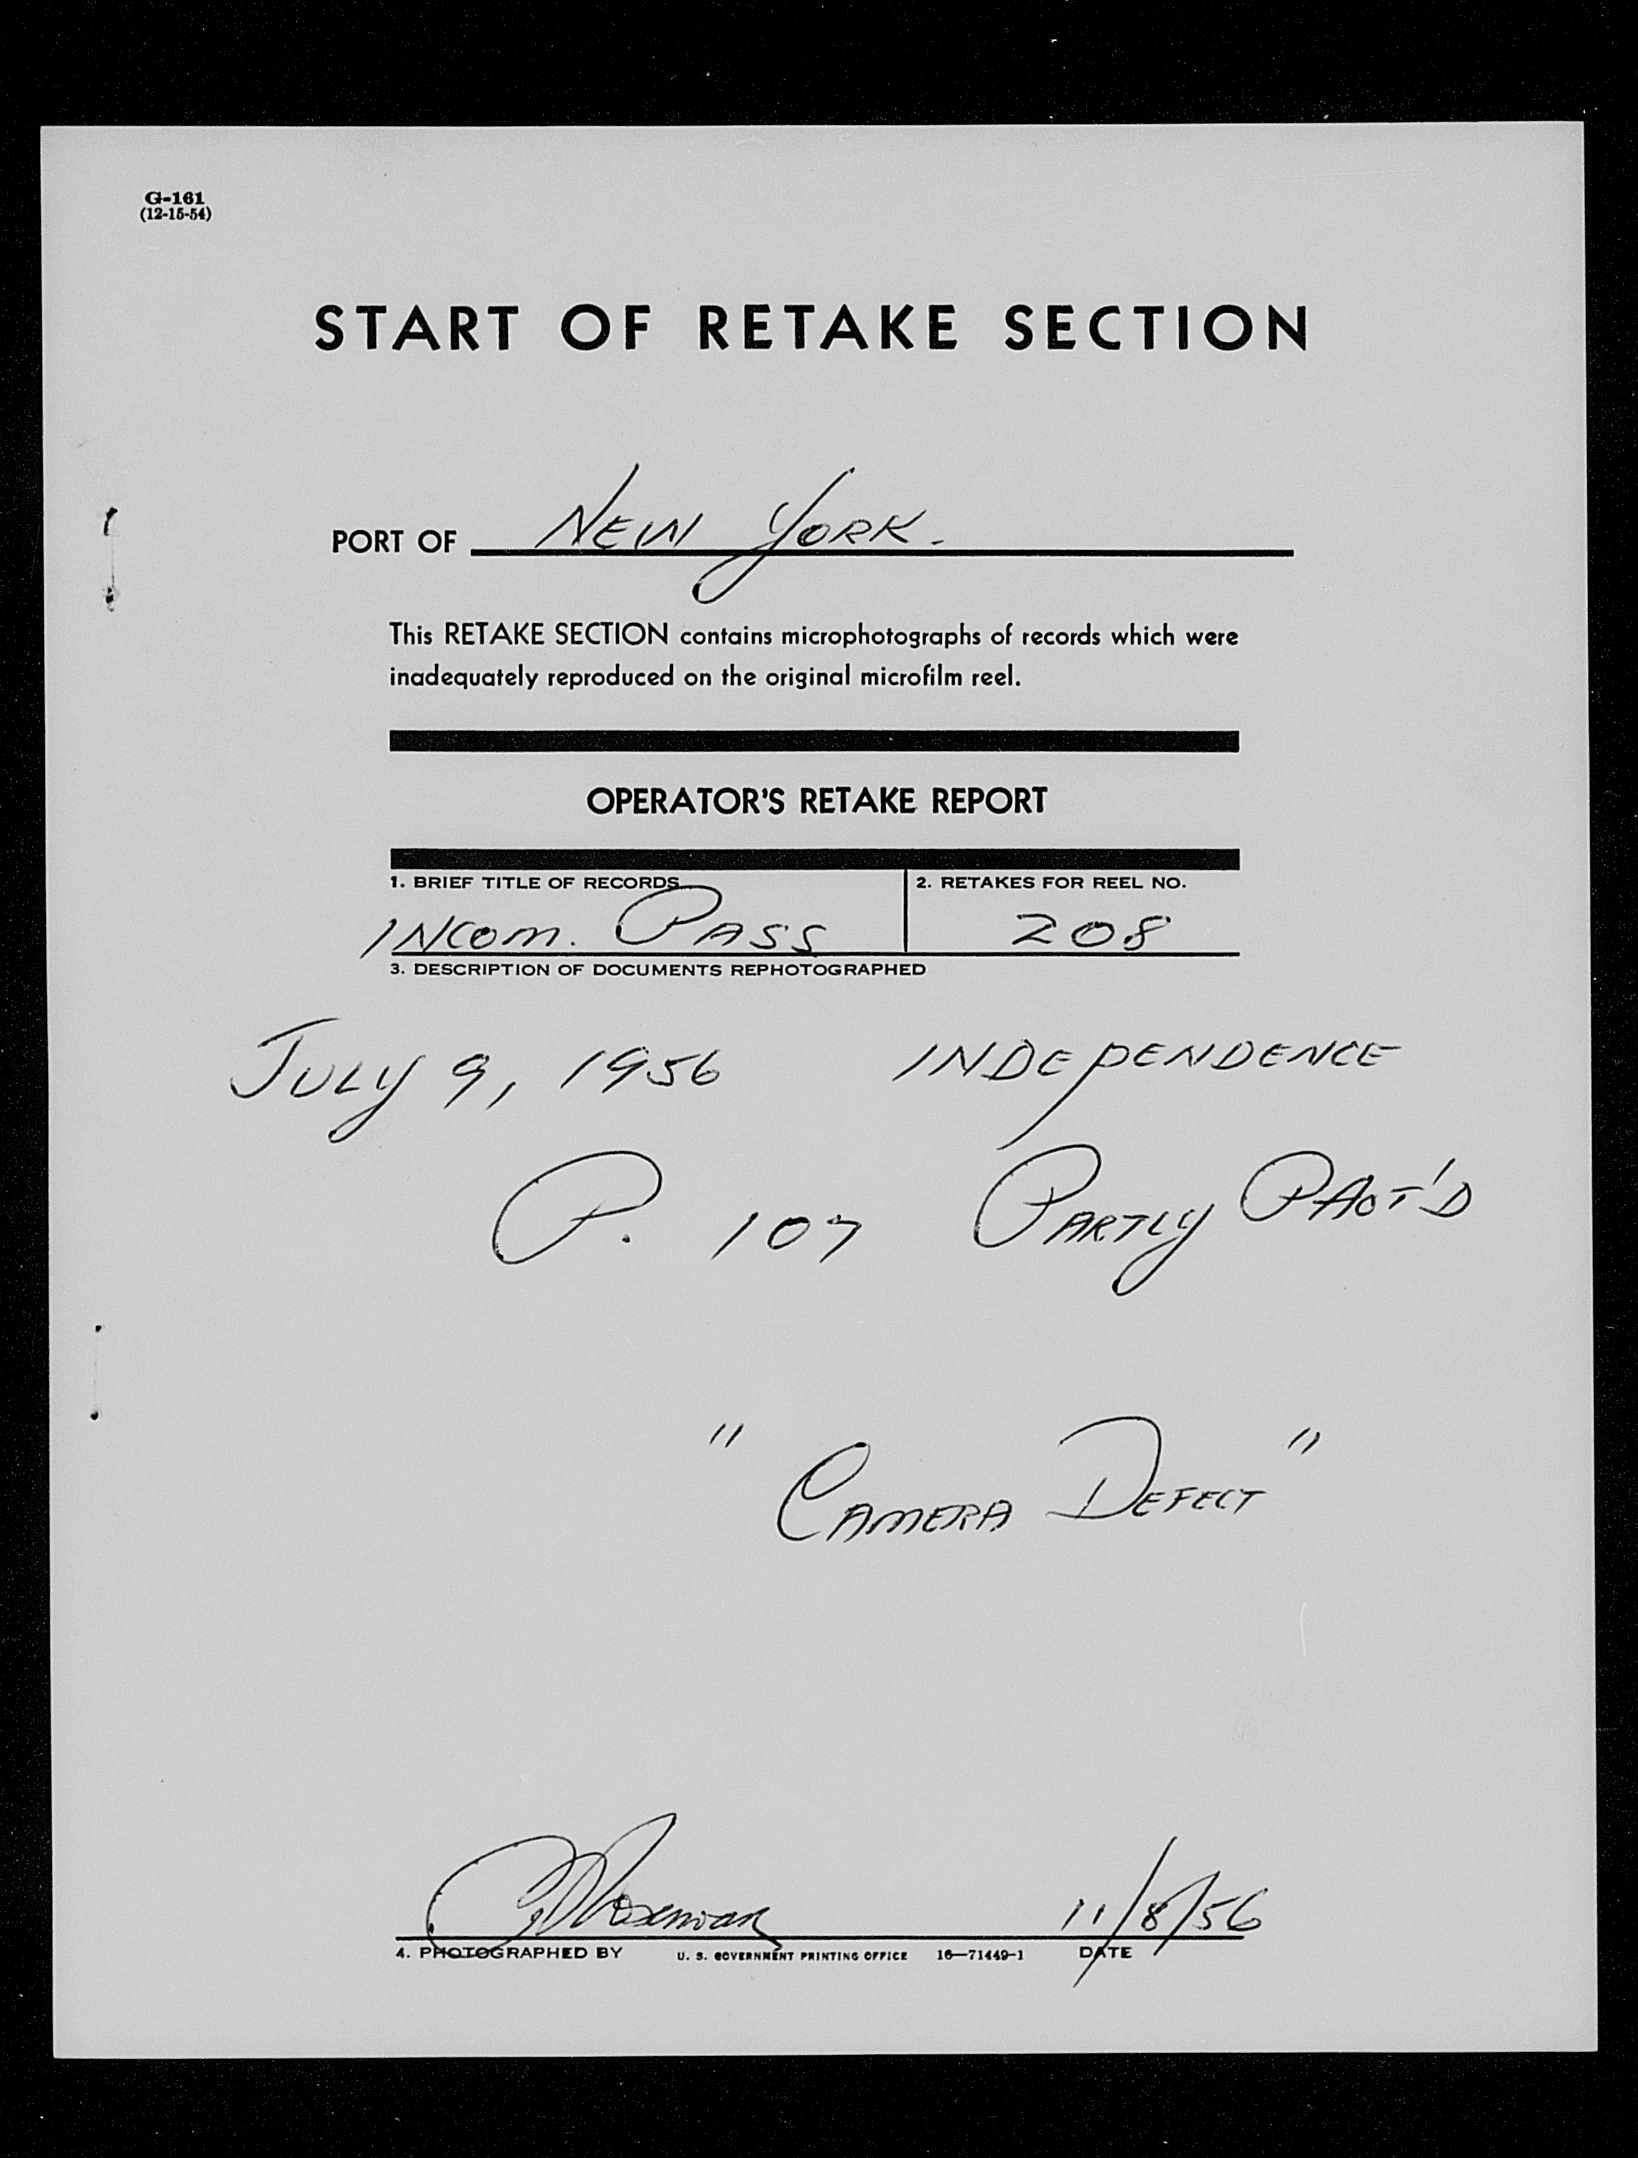 G-161
(12-15-54)
START OF RETAKE SECTION
PORT OF NEW YORK.
This RETAKE SECTION contains microphotographs of records which were
inadequately reproduced on the original microfilm reel.
OPERATOR'S RETAKE REPORT
1. BRIEF TITLE OF RECORDS 2. RETAKES FOR REEL NO.
INCOM. PASS 208
3. DESCRIPTION OF DOCUMENTS REPHOTOGRAPHED
JULY 9, 1956 INDEPENDENCE
P. 107 PARTLY PHOT'D
"CAMERA DEFECT"
11/8/56
4. PHOTOGRAPHED BY U. S. GOVERNMENT PRINTING OFFICE 16—71449-1 DATE